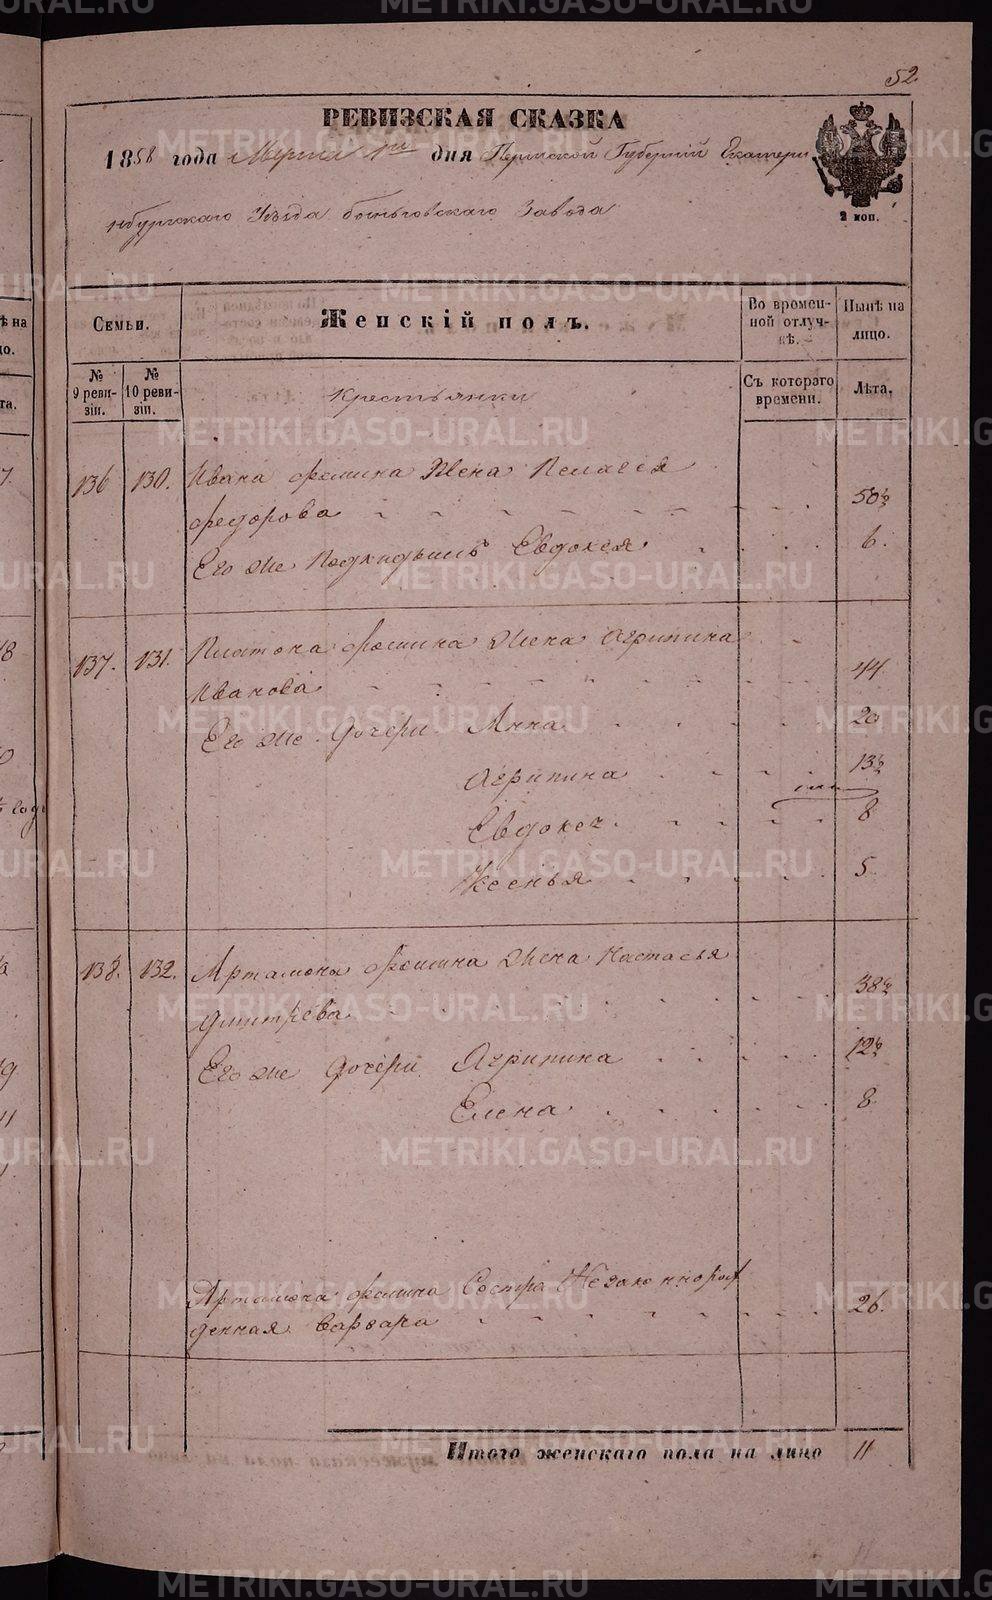 52.
РЕВИЗСКАЯ СКАЗКА
1858 года Марта 1го дня Пермской Губерніи Екатери
нбургскаго Уѣзда быньговскаго Завода
2 коп.
Семьи.
Женскій полъ.
Во времен-
ной отлуч-
кѣ.
Нынѣ на
лицо.
№
9 реви-
зіи.
№
10 реви-
зіи.
Крестьянки
Съ котораго
времени.
Лѣта.
136 130. Ивана фомина Жена Пелагея
федорова 50½
Его же Подкидышъ Евдокея 6.
137. 131. Платона фомина Жена Агрипина
Иванова 44
Его же Дочери Анна 20
Агрипина 13½
Евдокея 8
Ксенья 5.
138. 132. Артамона фомина Жена Настасья
дмитрева 38½
Его же дочери Агрипина 12½
Елена 8
Артамона фомина Сестра Незаконнорож
денная варвара 26.
Итого женскаго пола на лицо 11
METRIKI.GASO-URAL.RU